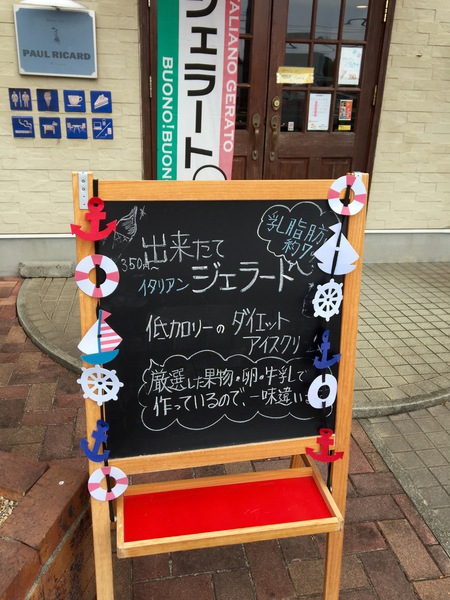 PAUL RICARD
ジェラート
ITALIANO GERATO
BUONO!BUON
出来たて
350円~
イタリアン ジェラード
乳脂肪
約7
低カロリーの ダイエット
アイスクリ
厳選した果物・卵・牛乳で
作っているので、一味違い